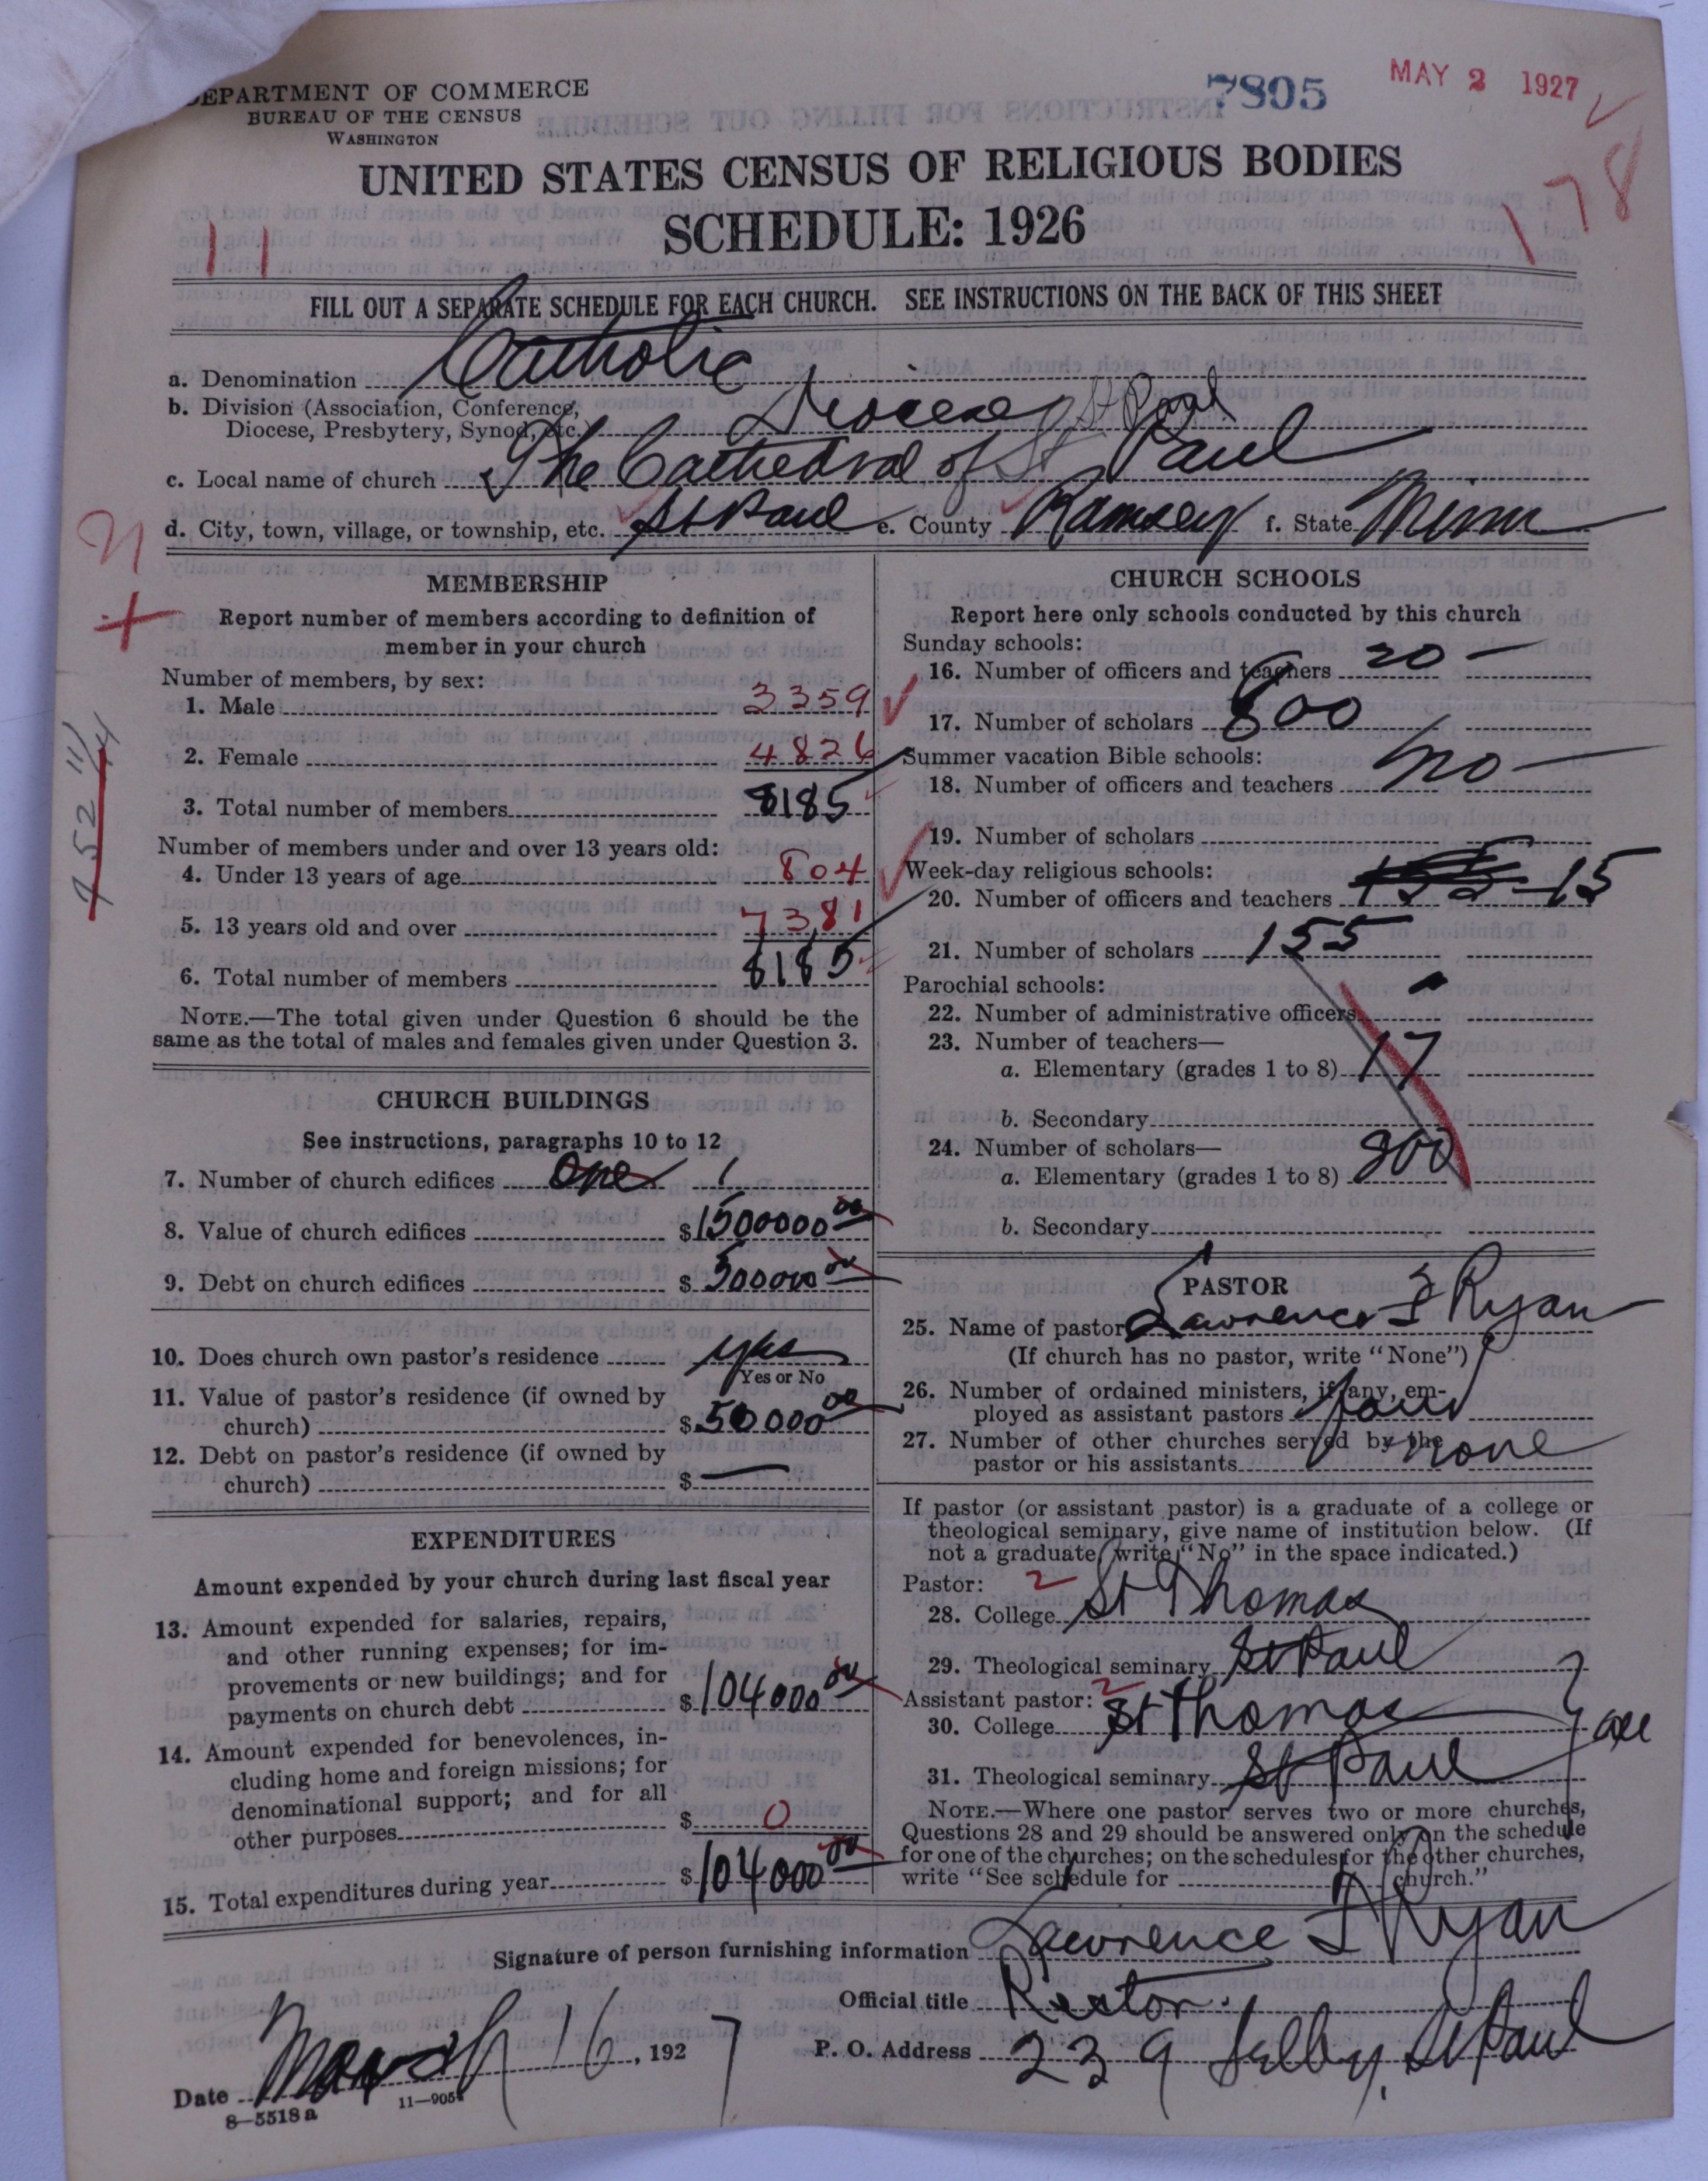 DEPARTMENT OF COMMERCE
BUREAU OF THE CENSUS
WASHINGTON
7805
MAY 2 1927
178
UNITED STATES CENSUS OF RELIGIOUS BODIES
SCHEDULE: 1926
11
FILL OUT A SEPARATE SCHEDULE FOR EACH CHURCH. SEE INSTRUCTIONS ON THE BACK OF THIS SHEET
a. Denomination Catholic
b. Division (Association, Conference,
Diocese, Presbytery, Synod, etc.) Diocese of St Paul
c. Local name of church The Cathedral of St Paul
d. City, town, village, or township, etc. St Paul e. County Ramsey f. State Minn
MEMBERSHIP
Report number of members according to definition of
member in your church
Number of members, by sex:
1. Male 3359
2. Female 4826
3. Total number of members 8185
Number of members under and over 13 years old:
4. Under 13 years of age 804
5. 13 years old and over 7381
6. Total number of members 8185
NOTE.—The total given under Question 6 should be the
same as the total of males and females given under Question 3.
CHURCH BUILDINGS
See instructions, paragraphs 10 to 12
7. Number of church edifices one 1
8. Value of church edifices $1500000 00
9. Debt on church edifices $500000 00
10. Does church own pastor's residence yes
Yes or No
11. Value of pastor's residence (if owned by
church) $50000 00
12. Debt on pastor's residence (if owned by
church) $ —
EXPENDITURES
Amount expended by your church during last fiscal year
13. Amount expended for salaries, repairs,
and other running expenses; for im-
provements or new buildings; and for
payments on church debt $104000 00
14. Amount expended for benevolences, in-
cluding home and foreign missions; for
denominational support; and for all
other purposes $ 0
15. Total expenditures during year $104000 00
CHURCH SCHOOLS
Report here only schools conducted by this church
Sunday schools:
16. Number of officers and teachers 20 —
17. Number of scholars 800
Summer vacation Bible schools:
18. Number of officers and teachers no —
19. Number of scholars
Week-day religious schools:
20. Number of officers and teachers 155 - 15
21. Number of scholars 155
Parochial schools:
22. Number of administrative officers
23. Number of teachers—
a. Elementary (grades 1 to 8) 17
b. Secondary
24. Number of scholars—
a. Elementary (grades 1 to 8) 800
b. Secondary
PASTOR
25. Name of pastor Lawrence F Ryan
(If church has no pastor, write "None")
26. Number of ordained ministers, if any, em-
ployed as assistant pastors four
27. Number of other churches served by the
pastor or his assistants none
If pastor (or assistant pastor) is a graduate of a college or
theological seminary, give name of institution below. (If
not a graduate, write "No" in the space indicated.)
Pastor: 2
28. College St Thomas
29. Theological seminary St Paul
Assistant pastor: 2
30. College St Thomas
all
31. Theological seminary St Paul
NOTE.—Where one pastor serves two or more churches,
Questions 28 and 29 should be answered only on the schedule
for one of the churches; on the schedules for the other churches,
write "See schedule for church."
Signature of person furnishing information Lawrence F Ryan
Official title Rector
Date March 16, 1927 P. O. Address 239 Selby, St Paul
8—5518 a
11—9051